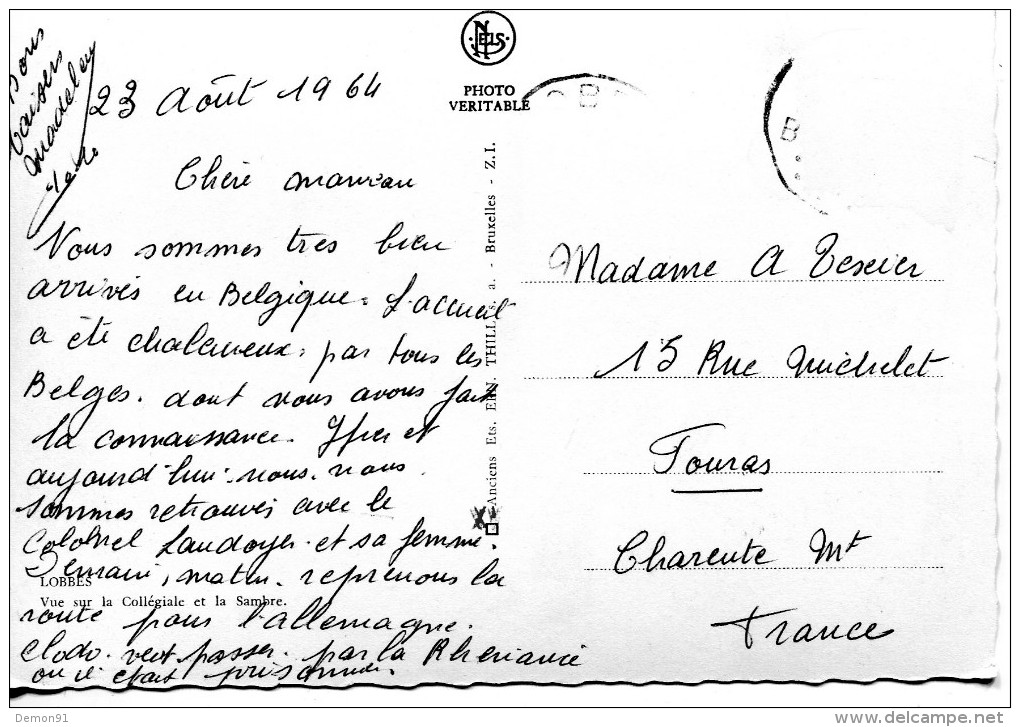 Bons
baisers
Madeleine
23 Août 1964
NELS
PHOTO
VERITABLE
B
Chère maman
Nous sommes très bien
arrivés en Belgique. L'accueil
a été chaleureux, par tous les
Belges. dont nous avons fait
la connaissance. Hier et
aujourd'hui. nous. nous
sommes retrouvés avec le
Colonel Landoyer et sa femme.
Demain, matin. reprenons la
route pour l'allemagne.
Clodo. veut passer. par la Rhenanie
ou il était prisonnier.
LOBBES
Vue sur la Collégiale et la Sambre.
Anciens Ets. ERN. THILL, s. a. - Bruxelles - Z.I.
Madame A Texier
15 Rue Michelet
Fouras
Charente Mt
France
Demon91
delcampe.net